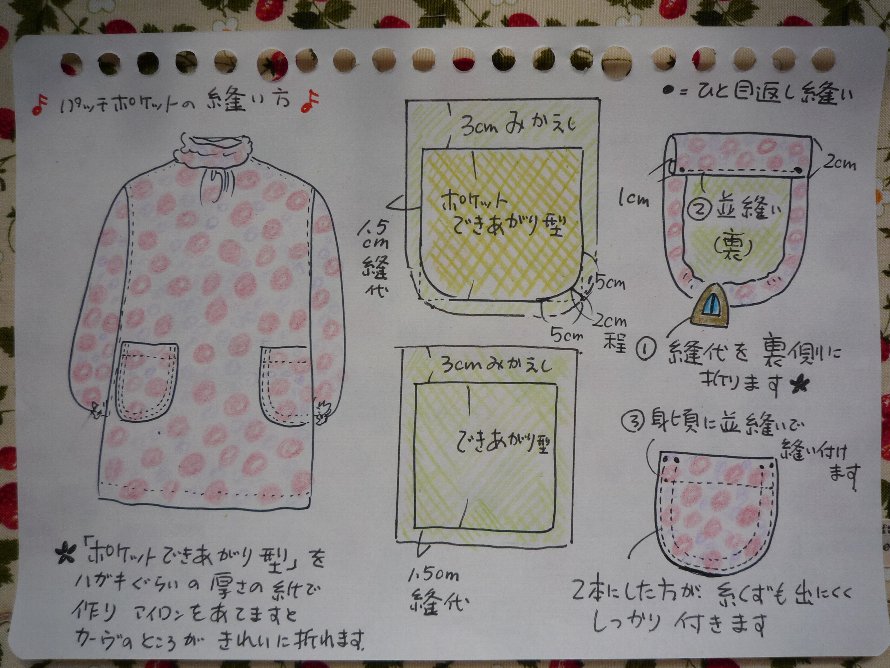 ♪ パッチポケットの 縫い方 ♪
●＝ひと目返し縫い
3cmみかえし
ポケット
できあがり型
1.5
cm
縫
代
5cm
2cm
程
5cm
1cm
2cm
②並縫い
(裏)
①縫代を裏側に
折ります★
3cmみかえし
できあがり型
1.5cm
縫代
③身頃に並縫いで
縫い付け
ます
2本にした方が 糸くずも出にくく
しっかり 付きます
★「ポケットできあがり型」を
ハガキぐらいの厚さの紙で
作り アイロンをあてますと
カーヴのところが きれいに折れます.